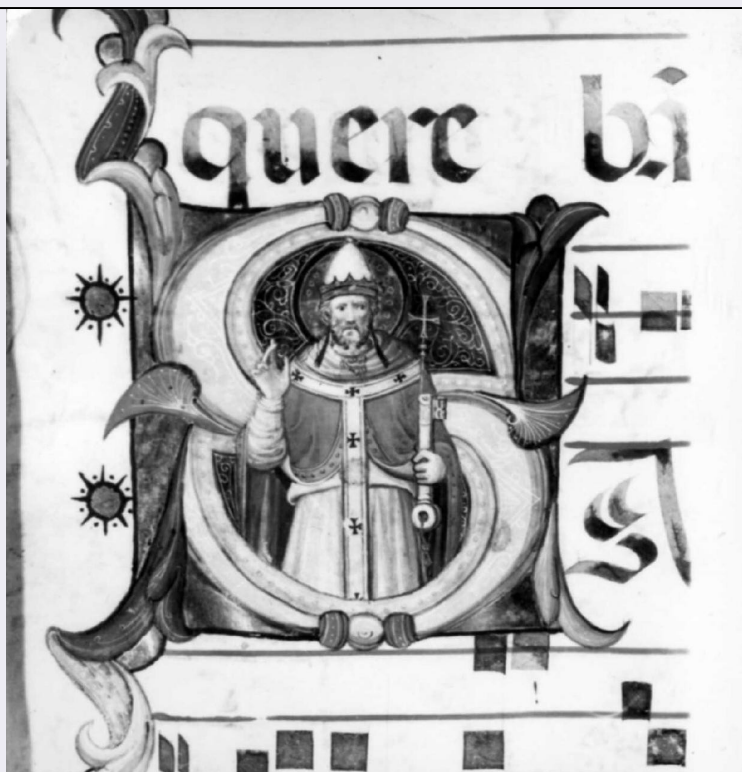 quere bi
SA